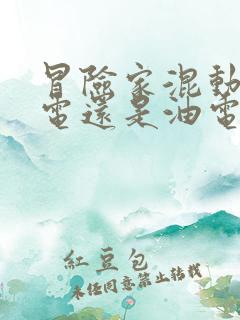 冒險家混動
電還是油電
紅豆包
未經同意禁止轉載